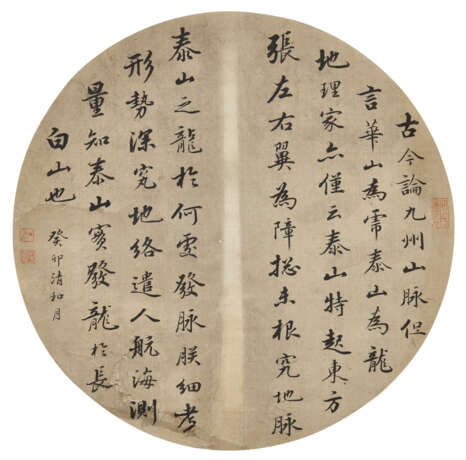 古今論九州山脉但
言華山為虎泰山為龍
地理家亦僅云泰山特起東方
張左右翼為障揔未根究地脉
泰山之龍於何處發脉朕細考
形勢深究地絡遣人航海測
量知泰山實發龍於長
白山也
癸卯清和月